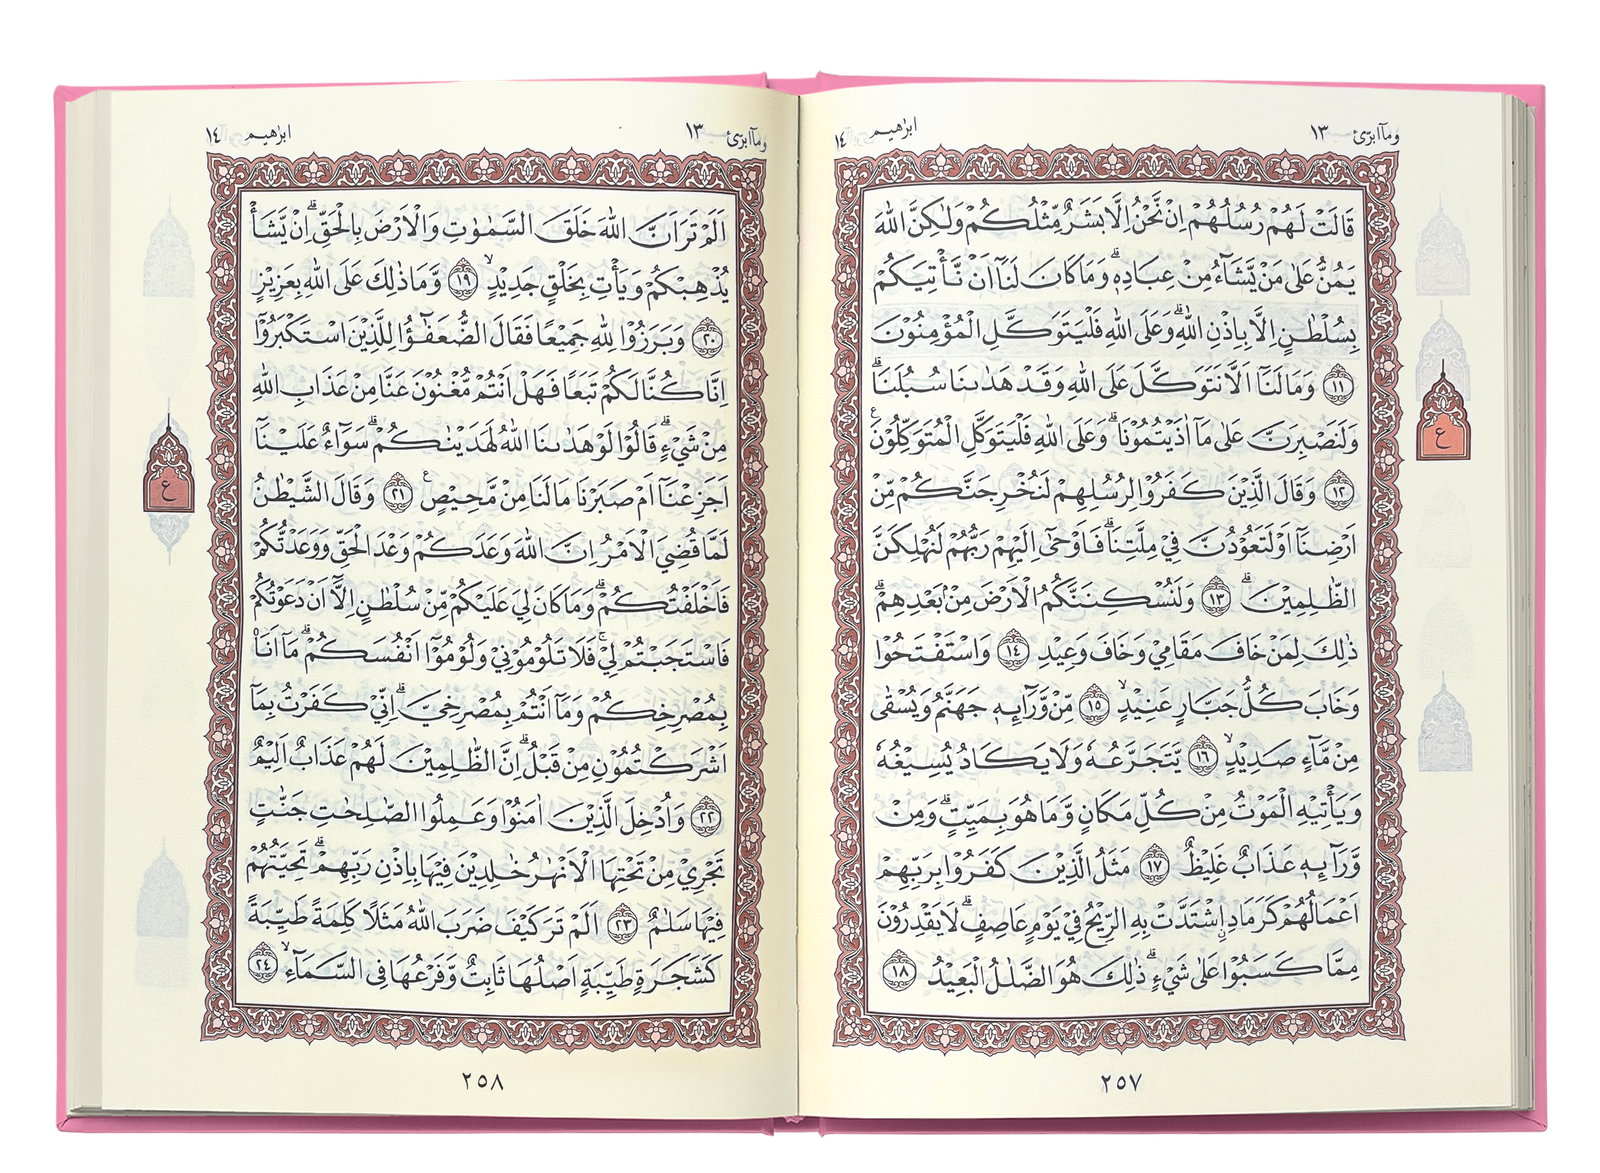 وماۤ ابرئ ١٣
ابرٰهيم ١٤
قَالَتْ لَهُمْ رُسُلُهُمْ اِنْ نَّحْنُ اِلَّا بَشَرٌ مِّثْلُكُمْ وَلٰكِنَّ اللّٰهَ
يَمُنُّ عَلٰى مَنْ يَّشَآءُ مِنْ عِبَادِهٖ ۗ وَمَا كَانَ لَنَآ اَنْ نَّأْتِيَكُمْ
بِسُلْطٰنٍ اِلَّا بِاِذْنِ اللّٰهِ ۗ وَعَلَى اللّٰهِ فَلْيَتَوَكَّلِ الْمُؤْمِنُوْنَ
١١ وَمَا لَنَآ اَلَّا نَتَوَكَّلَ عَلَى اللّٰهِ وَقَدْ هَدٰىنَا سُبُلَنَا ۗ
وَلَنَصْبِرَنَّ عَلٰى مَآ اٰذَيْتُمُوْنَا ۗ وَعَلَى اللّٰهِ فَلْيَتَوَكَّلِ الْمُتَوَكِّلُوْنَ ࣖ
١٢ وَقَالَ الَّذِيْنَ كَفَرُوْا لِرُسُلِهِمْ لَنُخْرِجَنَّكُمْ مِّنْ
اَرْضِنَآ اَوْ لَتَعُوْدُنَّ فِيْ مِلَّتِنَا ۗ فَاَوْحٰٓى اِلَيْهِمْ رَبُّهُمْ لَنُهْلِكَنَّ
الظّٰلِمِيْنَ ۗ ١٣ وَلَنُسْكِنَنَّكُمُ الْاَرْضَ مِنْۢ بَعْدِهِمْ ۗ
ذٰلِكَ لِمَنْ خَافَ مَقَامِيْ وَخَافَ وَعِيْدِ ١٤ وَاسْتَفْتَحُوْا
وَخَابَ كُلُّ جَبَّارٍ عَنِيْدٍ ۙ ١٥ مِّنْ وَّرَآئِهٖ جَهَنَّمُ وَيُسْقٰى
مِنْ مَّآءٍ صَدِيْدٍ ۙ ١٦ يَّتَجَرَّعُهٗ وَلَا يَكَادُ يُسِيْغُهٗ
وَيَأْتِيْهِ الْمَوْتُ مِنْ كُلِّ مَكَانٍ وَّمَا هُوَ بِمَيِّتٍ ۗ وَمِنْ
وَّرَآئِهٖ عَذَابٌ غَلِيْظٌ ١٧ مَثَلُ الَّذِيْنَ كَفَرُوْا بِرَبِّهِمْ
اَعْمَالُهُمْ كَرَمَادِ ِۨاشْتَدَّتْ بِهِ الرِّيْحُ فِيْ يَوْمٍ عَاصِفٍ ۗ لَا يَقْدِرُوْنَ
مِمَّا كَسَبُوْا عَلٰى شَيْءٍ ۗ ذٰلِكَ هُوَ الضَّلٰلُ الْبَعِيْدُ ١٨
ع
٢٥٧
وماۤ ابرئ ١٣
ابرٰهيم ١٤
اَلَمْ تَرَ اَنَّ اللّٰهَ خَلَقَ السَّمٰوٰتِ وَالْاَرْضَ بِالْحَقِّ ۗ اِنْ يَّشَأْ
يُذْهِبْكُمْ وَيَأْتِ بِخَلْقٍ جَدِيْدٍ ۙ ١٩ وَّمَا ذٰلِكَ عَلَى اللّٰهِ بِعَزِيْزٍ
٢٠ وَبَرَزُوْا لِلّٰهِ جَمِيْعًا فَقَالَ الضُّعَفٰٓؤُا لِلَّذِيْنَ اسْتَكْبَرُوْٓا
اِنَّا كُنَّا لَكُمْ تَبَعًا فَهَلْ اَنْتُمْ مُّغْنُوْنَ عَنَّا مِنْ عَذَابِ اللّٰهِ
مِنْ شَيْءٍ ۗ قَالُوْا لَوْ هَدٰىنَا اللّٰهُ لَهَدَيْنٰكُمْ ۗ سَوَآءٌ عَلَيْنَآ
اَجَزِعْنَآ اَمْ صَبَرْنَا مَا لَنَا مِنْ مَّحِيْصٍ ࣖ ٢١ وَقَالَ الشَّيْطٰنُ
لَمَّا قُضِيَ الْاَمْرُ اِنَّ اللّٰهَ وَعَدَكُمْ وَعْدَ الْحَقِّ وَوَعَدْتُّكُمْ
فَاَخْلَفْتُكُمْ ۗ وَمَا كَانَ لِيَ عَلَيْكُمْ مِّنْ سُلْطٰنٍ اِلَّآ اَنْ دَعَوْتُكُمْ
فَاسْتَجَبْتُمْ لِيْ ۚ فَلَا تَلُوْمُوْنِيْ وَلُوْمُوْٓا اَنْفُسَكُمْ ۗ مَآ اَنَا۠
بِمُصْرِخِكُمْ وَمَآ اَنْتُمْ بِمُصْرِخِيَّ ۗ اِنِّيْ كَفَرْتُ بِمَآ
اَشْرَكْتُمُوْنِ مِنْ قَبْلُ ۗ اِنَّ الظّٰلِمِيْنَ لَهُمْ عَذَابٌ اَلِيْمٌ
٢٢ وَاُدْخِلَ الَّذِيْنَ اٰمَنُوْا وَعَمِلُوا الصّٰلِحٰتِ جَنّٰتٍ
تَجْرِيْ مِنْ تَحْتِهَا الْاَنْهٰرُ خٰلِدِيْنَ فِيْهَا بِاِذْنِ رَبِّهِمْ ۗ تَحِيَّتُهُمْ
فِيْهَا سَلٰمٌ ٢٣ اَلَمْ تَرَ كَيْفَ ضَرَبَ اللّٰهُ مَثَلًا كَلِمَةً طَيِّبَةً
كَشَجَرَةٍ طَيِّبَةٍ اَصْلُهَا ثَابِتٌ وَّفَرْعُهَا فِى السَّمَآءِ ۙ ٢٤
ع
٢٥٨